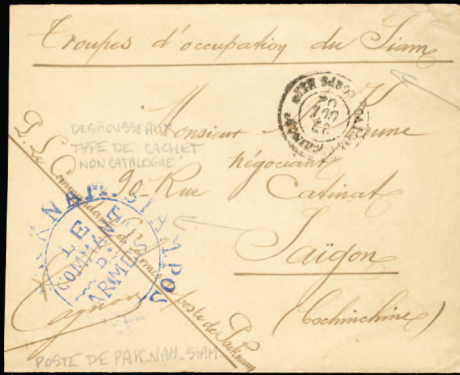 Troupes d'occupation du Siam
CORPS EXP
DESROUSSEAUX
TYPE DE CACHET
NON CATALOGUÉ
Monsieur Kune
négociant
90 Rue Catinat
Saïgon
(Cochinchine)
P. Le Commandant d'armes
poste de Paknam
LE
COMMAND
D'ARMES
POSTE DE PAK-NAM-SIAM